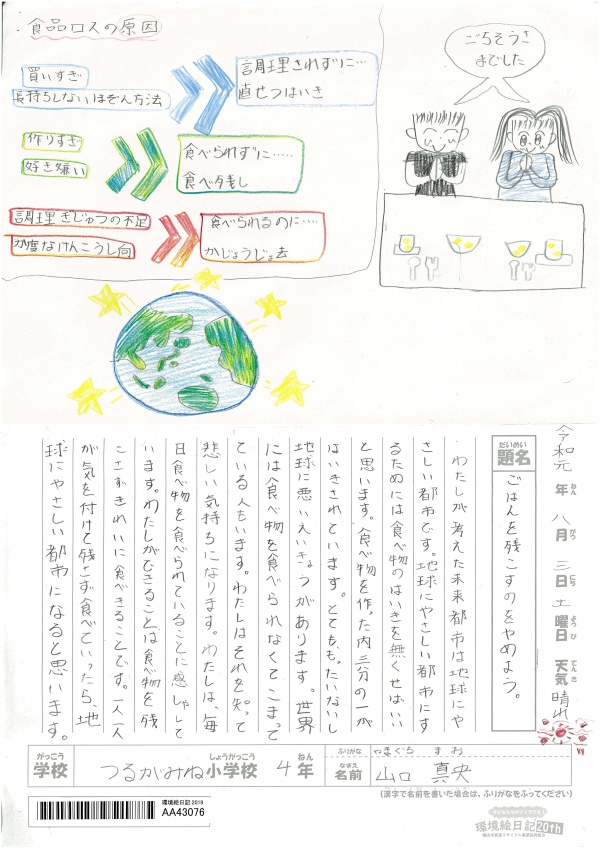 食品ロスの原因
買いすぎ
長持ちしないほぞん方法
調理されずに…
直せつはいき
作りすぎ
好き嫌い
食べられずに……
食べ残し
調理ぎじゅつの不足
か度なけんこうし向
食べられるのに…
かじょうじょ去
ごちそうさ
までした
令和元年 八月 三日 土曜日 天気 晴れ
ねん がつ にち ようび てんき
だいめい
題名
ごはんを残こすのをやめよう。
わたしが考えた未来都市は地球にや
さしい都市です。地球にやさしい都市にす
るためには食べ物のはいきを無くせばいい
と思います。食べ物を作った内三分の一が
はいきされています。とても、もったいないし
地球に悪いえいきょうがあります。世界
には食べ物を食べられなくてこまって
ている人もいます。わたしはそれを知って
悲しい気持ちになります。わたしは、毎
日食べ物を食べられていることに感しゃして
います。わたしができることは食べ物を残
こさずきれいに食べきることです。一人一人
が気を付けて残さず食べていったら、地
球にやさしい都市になると思います。
がっこう しょうがっこう ねん
学校 つるがみね小学校 4年
ふりがな やまぐち まお
なまえ
名前 山口 真央
(漢字で名前を書いた場合は、ふりがなをふってください)
環境絵日記2019
AA43076
環境絵日記20th